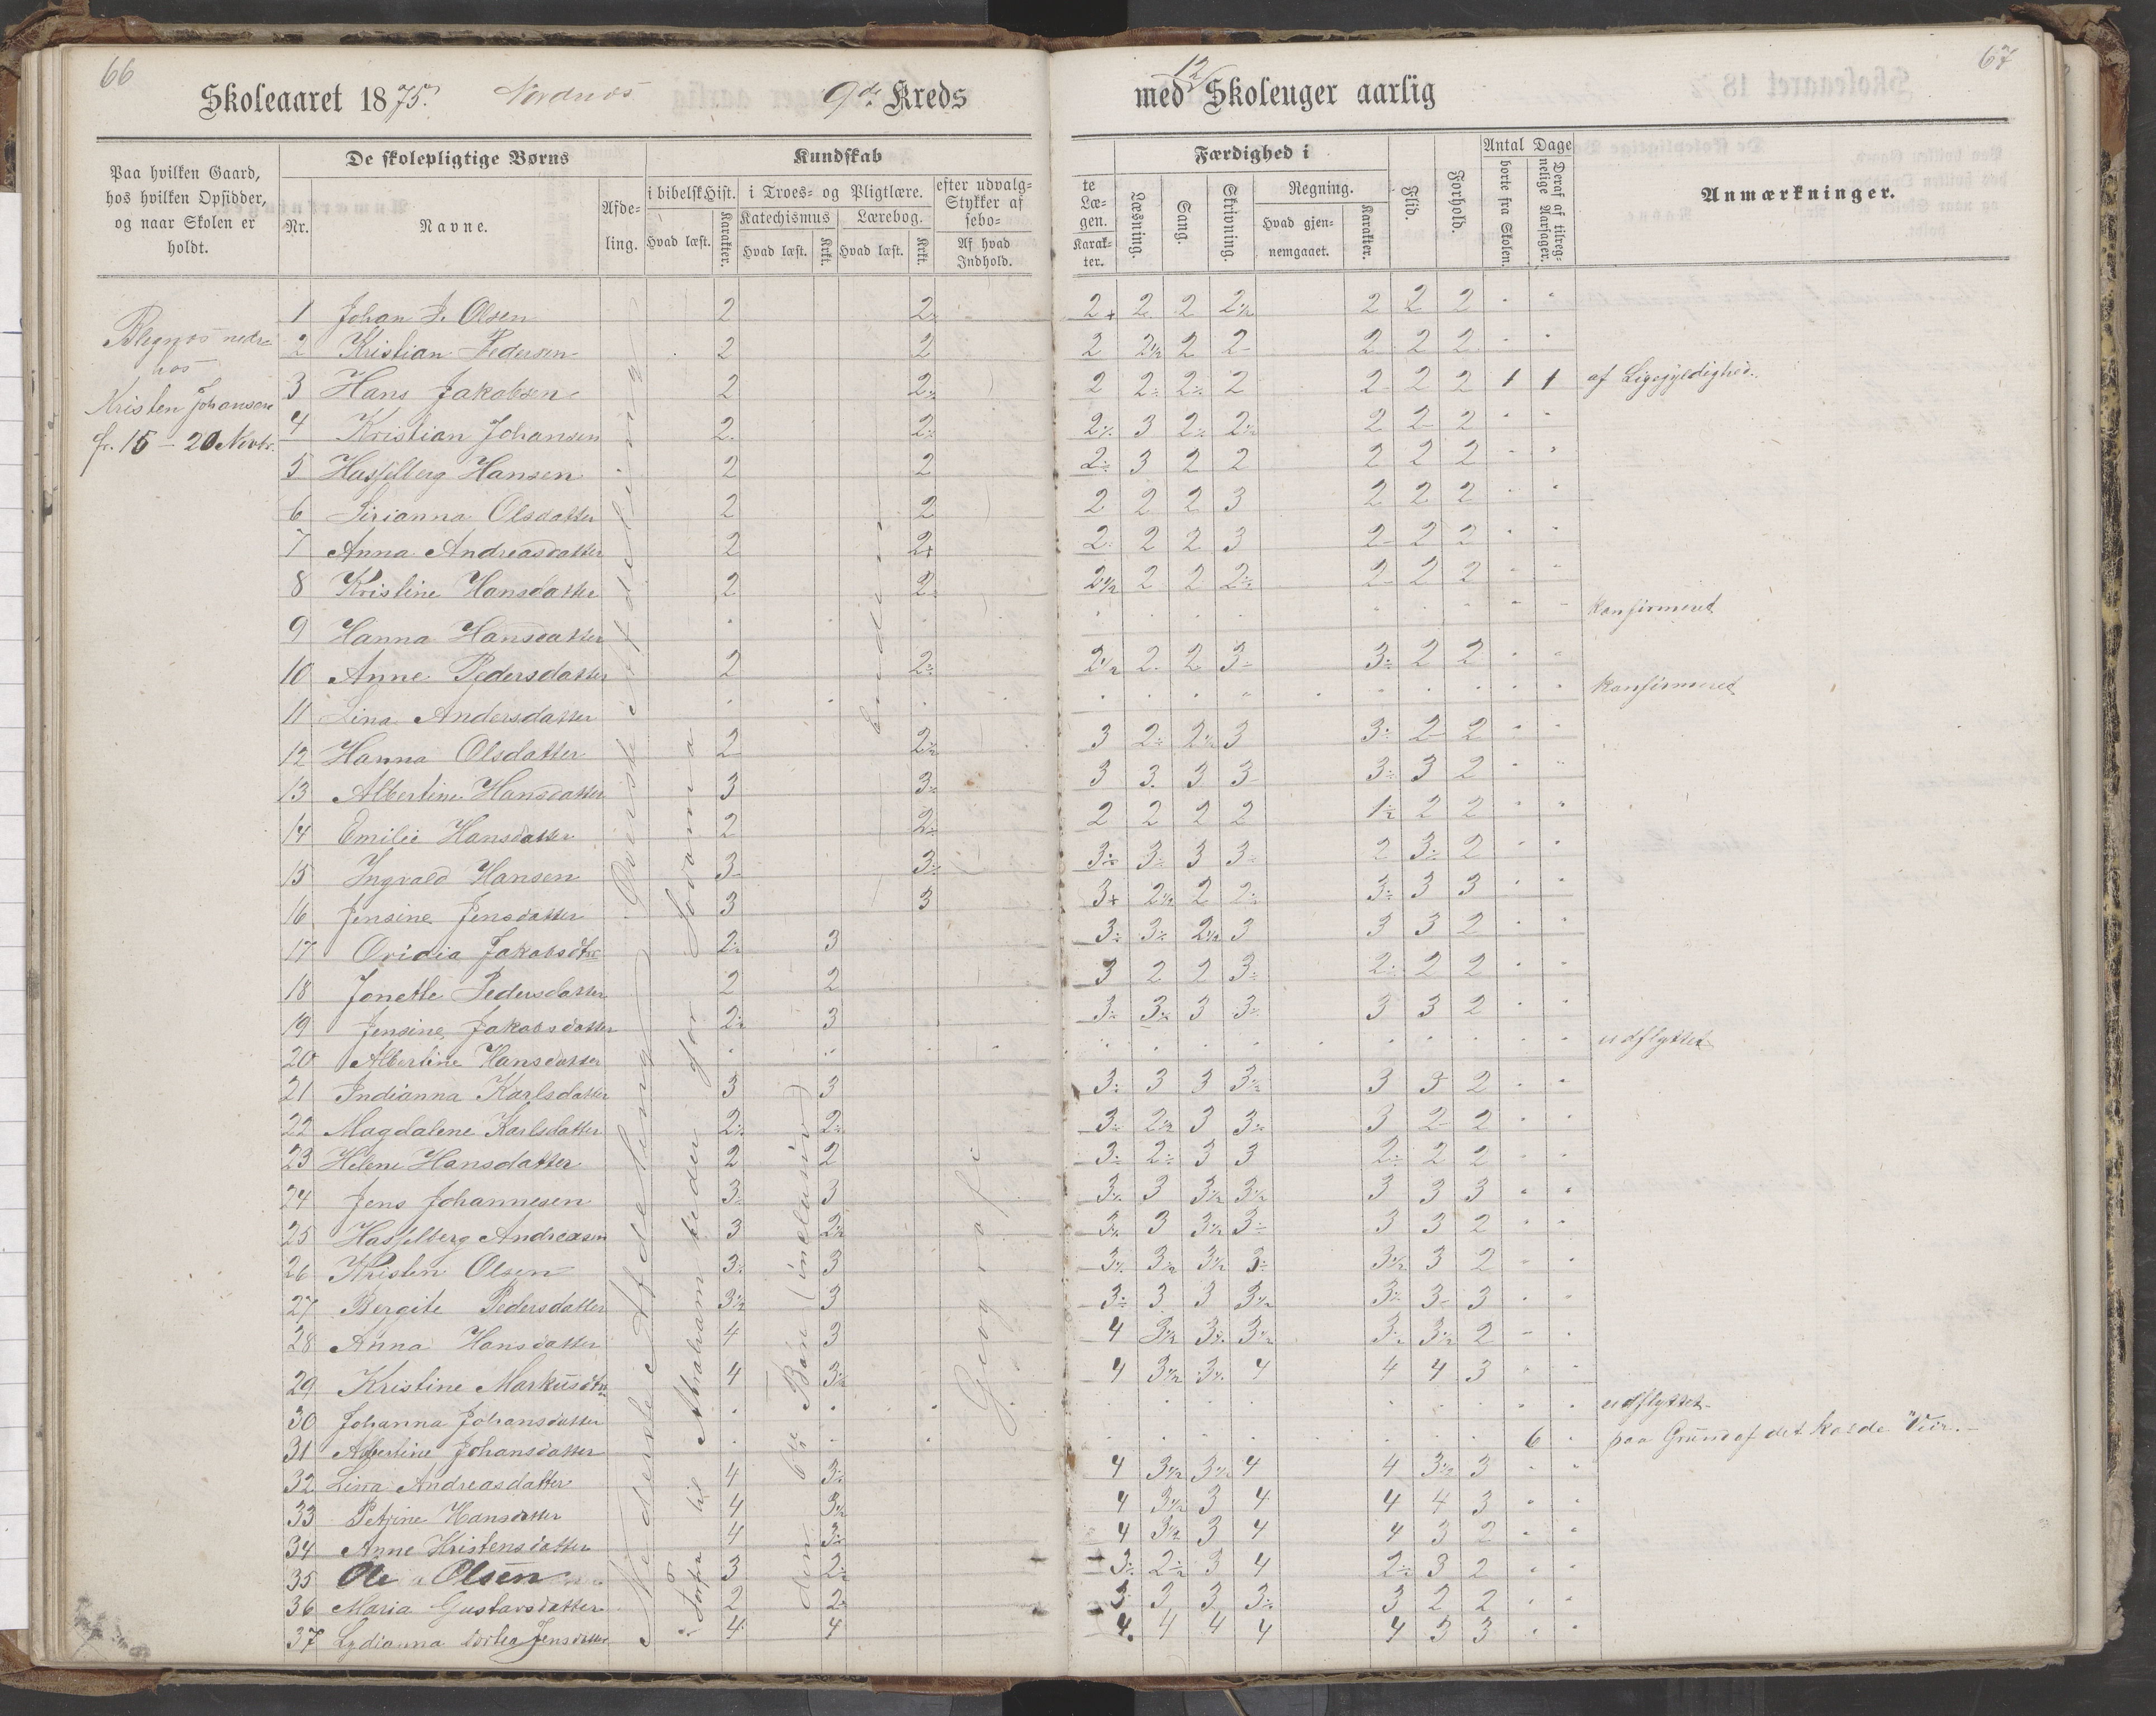 66
Skoleaaret 1875. Nordnæs 9de Kreds
Paa hvilken Gaard, hos hvilken Opsidder, og naar Skolen er holdt.
De skolepligtige Børns
Nr.
Navne.
Afde-
ling.
Kundskab
i bibelsk Hist.
Hvad læst.
Karakter.
i Troes- og Pligtlære.
Katechismus
Hvad læst.
Krkt.
Lærebog.
Hvad læst.
Krkt.
efter udvalg-
Stykker af
sebo-
Af hvad
Indhold.
hos
Kristen Johansen
fr. 15 - 20 Novbr.
1 Johan P. Olsen 2 2
2 Kristian Pedersen 2 2
3 Hans Jakobsen 2 2
4 Kristian Johansen 2 2
5 Hasselberg Hansen 2 2
6 Sirianna Olsdatter 2 2
7 Anna Andreasdatter 2 2+
8 Kristine Hansdatter 2 2
9 Hanna Hansdatter
10 Anne Pedersdatter 2 2
11 Lina Andersdatter
12 Hanna Olsdatter 2 2½
13 Albertine Hansdatter 3 3
14 Emilie Hansdatter 2 2
15 Ingvald Hansen 3 3
16 Jensine Jensdatter 3 3
17 Ovidia Jakobsdtr 2 3
18 Jonette Pedersdatter 2 2
19 Jensine Jakobsdatter 2 3
20 Albertine Hansdatter
21 Indianna Karlsdatter 3 3
22 Magdalene Karlsdatter 2 2
23 Helene Hansdatter 2 2
24 Jens Johannesen 3 3
25 Hasselberg Andreasen 3 2½
26 Kristen Olsen 3 3
27 Bergite Pedersdatter 3½ 3
28 Anna Hansdatter 4 3
29 Kristine Markusdtr 4 3½
30 Johanna Johansdatter
31 Albertine Johansdatter
32 Lina Andreasdatter 4 3
33 Petrine Hansdatter 4 3½
34 Anne Kristensdatter 4 3
35 Ole Olsen 3 2
36 Maria Gustavsdatter 2 2
37 Lydianna Jensdatter 4 4
Øverste Afdeling
Nederste Afdeling
til Abraham beder for Sodoma
6te Bøn (inclusiv)
Geografi
67
med 12 Skoleuger aarlig
te Læ-
gen.
Karak-
ter.
Færdighed i
Læsning.
Sang.
Skrivning.
Regning.
Hvad gjen-
nemgaaet.
Karakter.
Flid.
Forhold.
Antal Dage
borte fra Skolen.
Deraf af tilreg-
nelige Aarsager.
Anmærkninger.
2+ 2 2 2½ 2 2 2
2 2½ 2 2 2 2 2
2 2 2 2 2 2 2 1 1 af Ligegyldighed.
2 3 2 2½ 2 2 2
2 3 2 2 2 2 2
2 2 2 3 2 2 2
2 2 2 3 2 2 2
2½ 2 2 2 2 2 2
konfirmeret
2½ 2 2 3 3 2 2
konfirmeret
3 2 2½ 3 3 2 2
3 3 3 3 3 3 2
2 2 2 2 1½ 2 2
3 3 3 3 2 3 2
3+ 2½ 2 2 3 3 3
3 3 2½ 3 3 3 2
3 2 2 3 2 2 2
3 3 3 3 3 3 2
udflyttet
3 3 3 3½ 3 3 2
3 2½ 3 3 3 2 2
3 2 3 3 2 2 2
3 3 3½ 3½ 3 3 3
3 3 3½ 3 3 3 2
3 3½ 3½ 3 3½ 3 2
3 3 3 3½ 3 3 3
4 3½ 3 3½ 3 3½ 2
4 3½ 3 4 4 4 3
udflyttet
6 paa Grund af det kolde Veir.
4 3½ 3½ 4 4 3½ 3
4 3½ 3 4 4 4 3
4 3½ 3 4 4 3 2
3 2½ 3 4 2 3 2
3 3 3 3 3 2 2
4 4 4 4 4 3 3